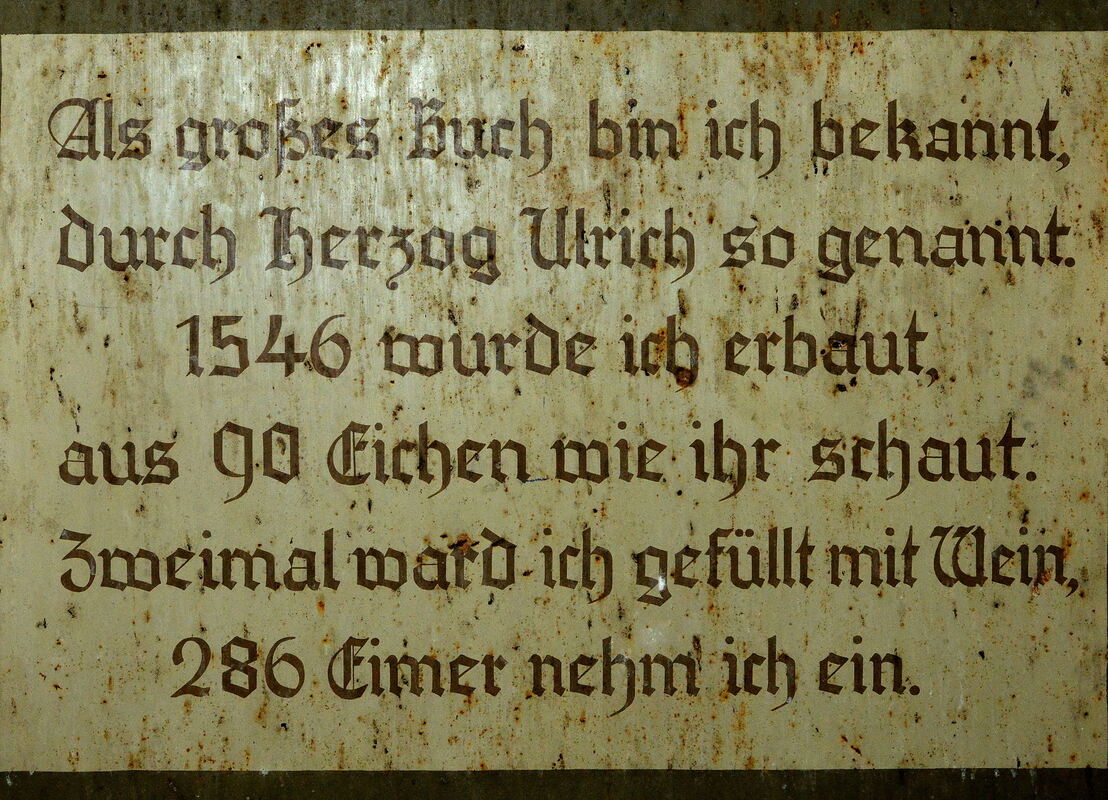 Als großes Buch bin ich bekannt,
durch Herzog Ulrich so genannt.
1546 wurde ich erbaut,
aus 90 Eichen wie ihr schaut.
Zweimal ward ich gefüllt mit Wein,
286 Eimer nehm ich ein.